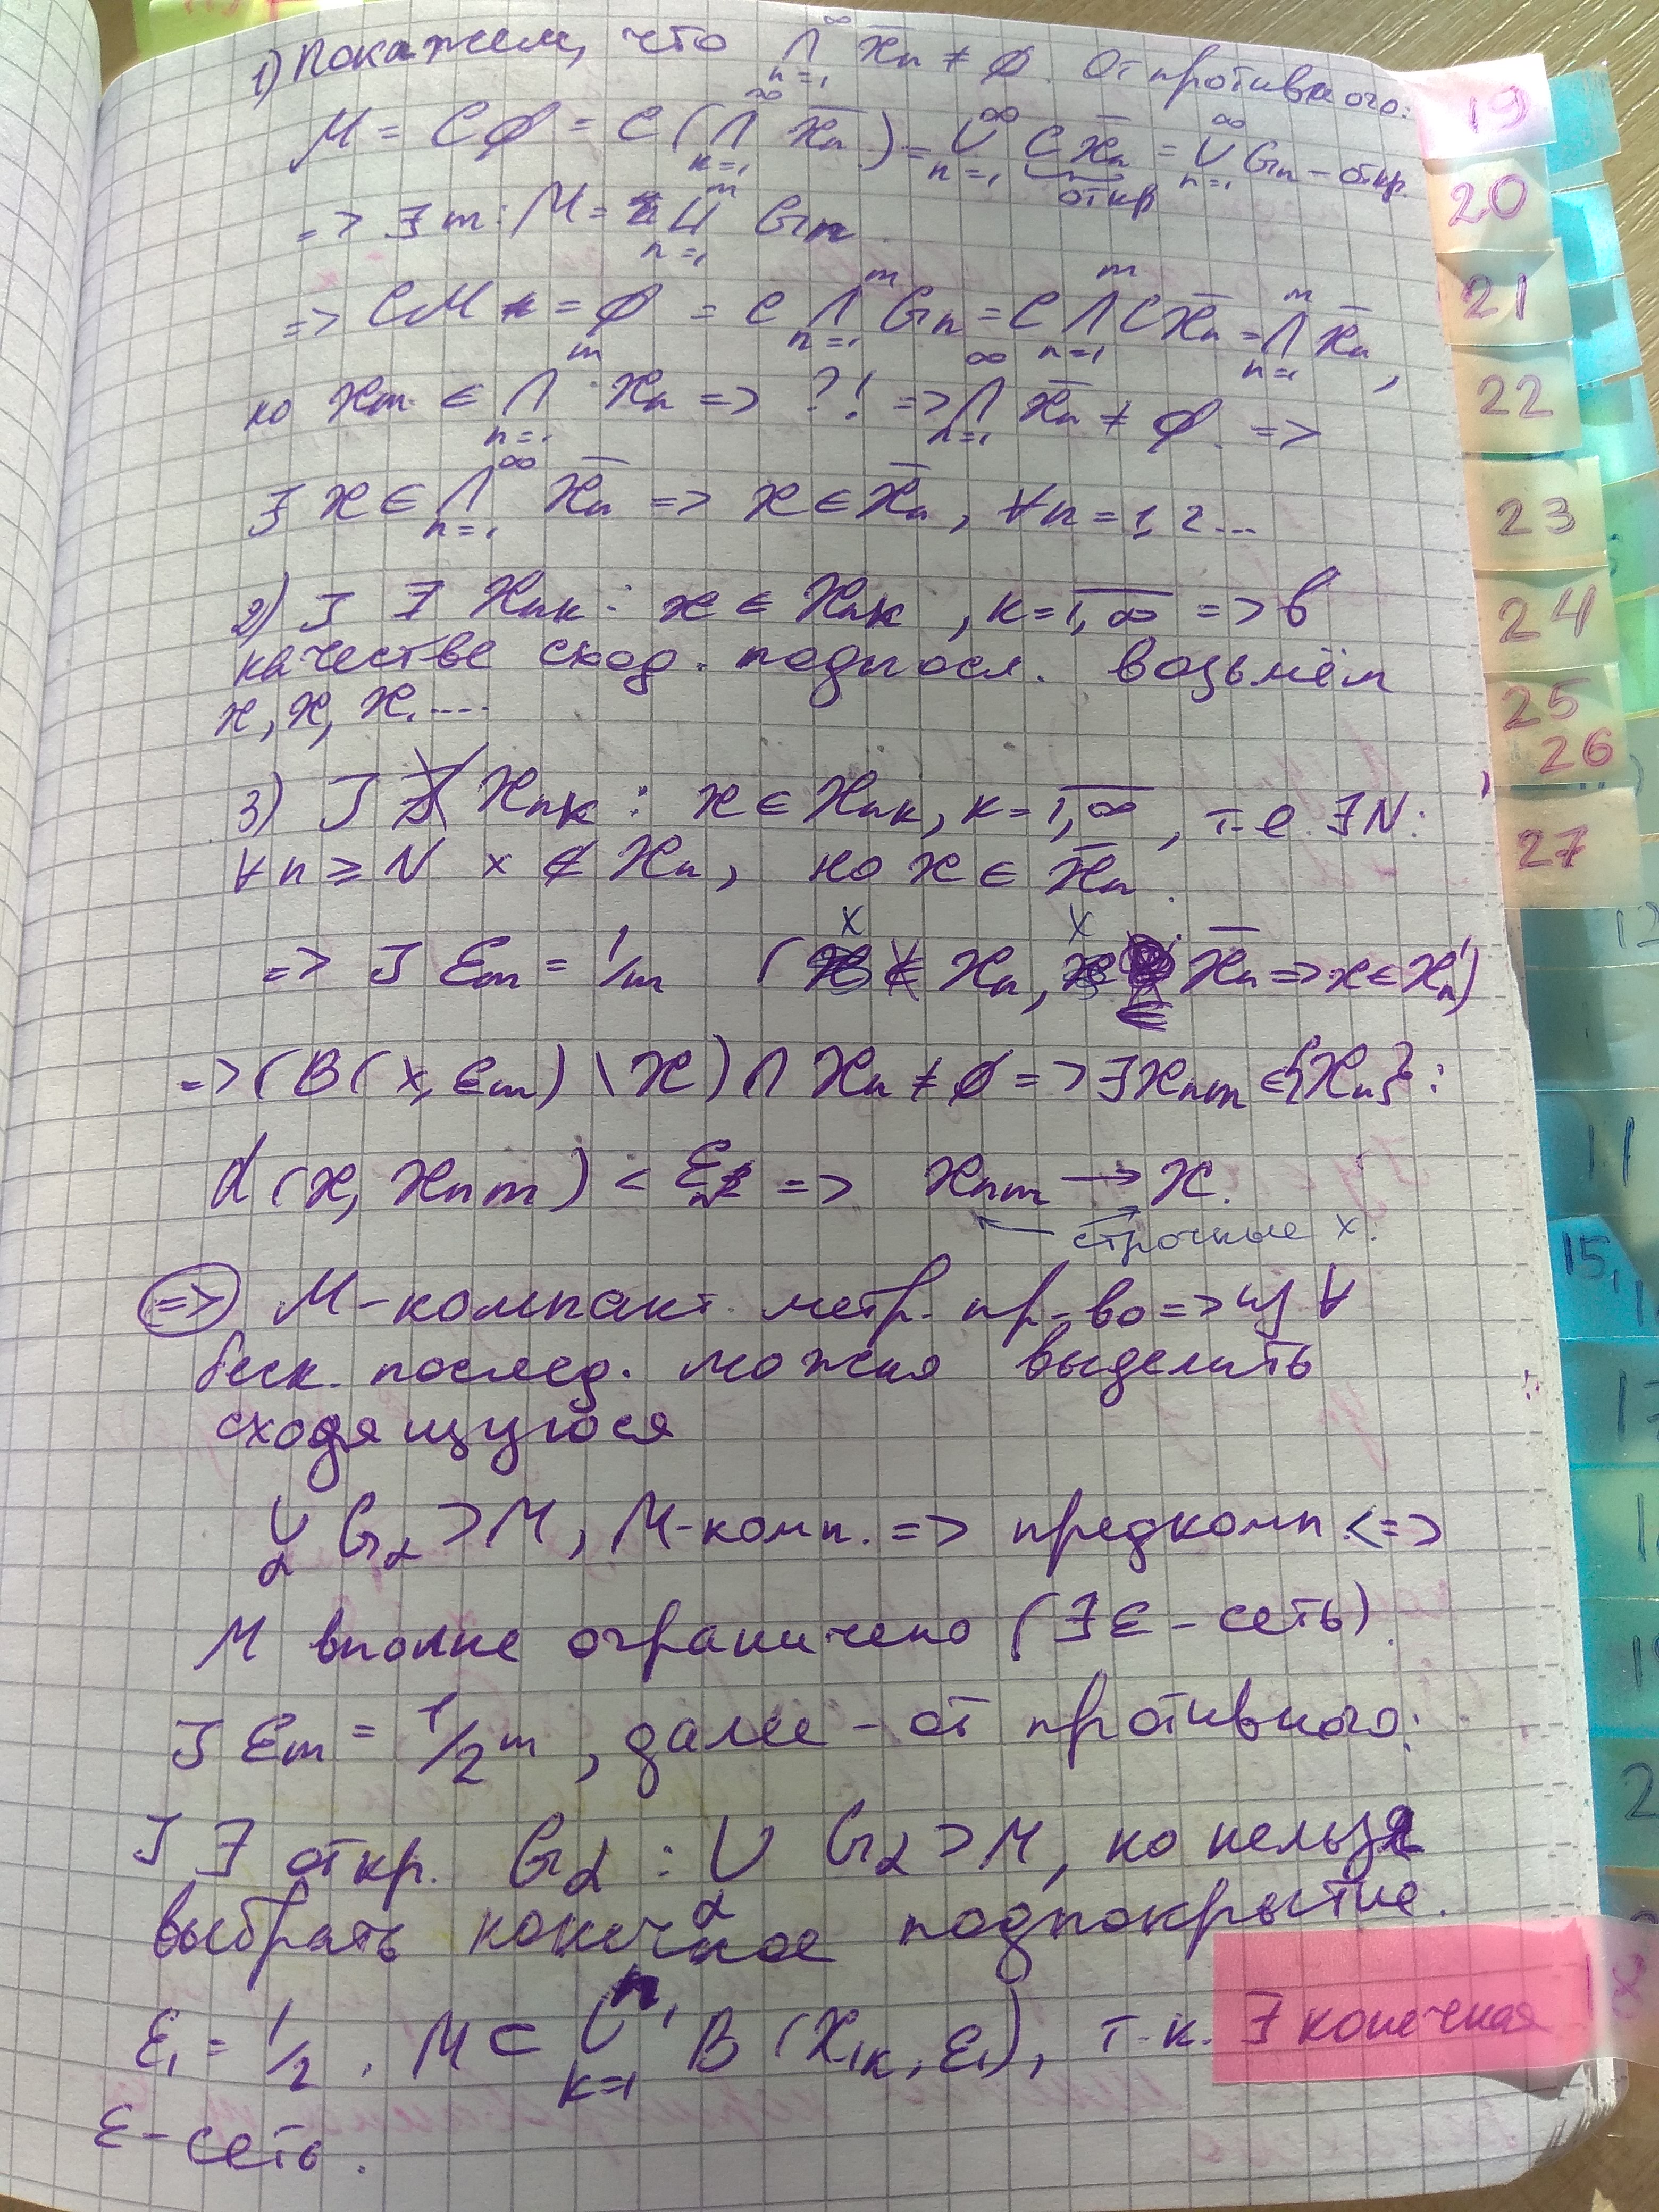 1) Покажем, что ∞⋂n=1 X̄n ≠ ∅. От противного:
M = C∅ = C(∞⋂n=1 X̄n) = ∞⋃n=1 CX̄n = ∞⋃n=1 Gn – откр.
откр
=> ∃ m: M = m⋃n=1 Gn
=> CM = ∅ = C m⋂n=1 Gn = C m⋂n=1 CX̄n = m⋂n=1 X̄n,
но xm ∈ m⋂n=1 Xn => ?! => ∞⋂n=1 X̄n ≠ ∅. =>
∃ x ∈ ∞⋂n=1 X̄n => x ∈ X̄n, ∀n = 1, 2...
2) J ∃ Xnk : x ∈ Xnk, k = 1,∞ => в
качестве сход. подпосл. возьмём
x, x, x. ....
3) J ∄ Xnk : x ∈ Xnk, k = 1,∞, т.е. ∃N:
∀n ≥ N x ∉ Xn, но x ∈ X̄n.
=> J εm = 1/m (x ∉ Xn, x ∈ X̄n => x ∈ X'n)
=> (B(x, εm) \ x) ∩ Xn ≠ ∅ => ∃ xnm ∈ {Xn}:
d(x, xnm) < εm => xnm → x.
строчные x.
=> M – компакт. метр. пр-во => из ∀
беск. послед. можно выделить
сходящуюся
⋃α Gα ⊃ M, M-комп. => предкомп. <=>
M вполне ограничено (∃ε – сеть).
J εm = 1/2^m, далее – от противного:
J ∃ откр. Gα : ⋃α Gα ⊃ M, но нельзя
выбрать конечное подпокрытие.
ε1 = 1/2. M ⊂ n1⋃k=1 B(X1k, ε1), т.к. ∃ конечная
ε-сеть.
19
20
21
22
23
24
25
26
27
11
15,